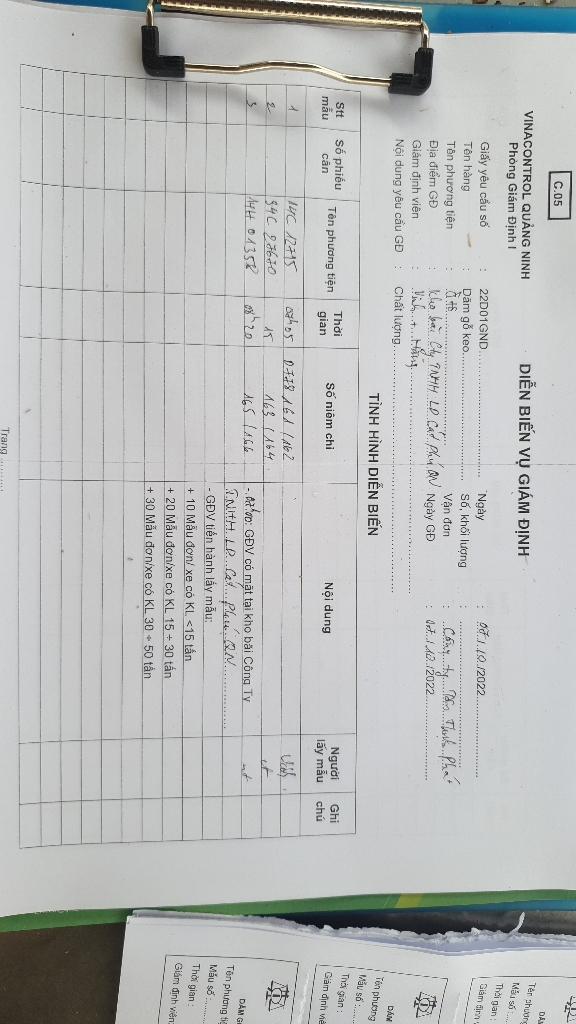 C.05
VINACONTROL QUẢNG NINH
Phòng Giám Định I
DIỄN BIẾN VỤ GIÁM ĐỊNH
Giấy yêu cầu số : 22D01GND Ngày : 07/10/2022
Tên hàng : Dăm gỗ keo Số, khối lượng :
Tên phương tiện : Ô tô Vận đơn : Công ty Tân Thịnh Phát
Địa điểm GĐ : Kho bãi Cty TNHH LD Cát Phú QN Ngày GĐ : 07/10/2022
Giám định viên :
Nội dung yêu cầu GĐ : Chất lượng
TÌNH HÌNH DIỄN BIẾN
Stt mẫu Số phiếu cân Tên phương tiện Thời gian Số niêm chì Nội dung Người lấy mẫu Ghi chú
1 14C 12715 07h05 161/162
2 34C 27670 15 163/164
3 14H 01358 08h20 165/166 GĐV có mặt tại kho bãi Công Ty
TNHH LD Cát Phú QN
- GĐV tiến hành lấy mẫu:
+ 10 Mẫu đơn/ xe có KL <15 tấn
+ 20 Mẫu đơn/xe có KL 15 ÷ 30 tấn
+ 30 Mẫu đơn/xe có KL 30 ÷ 50 tấn
Trang
Tên phương
Mẫu số :
Thời gian :
Giám định
Tên phương
Mẫu số :
Thời gian :
Giám định viên
Tên phương
Mẫu số :
Thời gian :
Giám định viên: